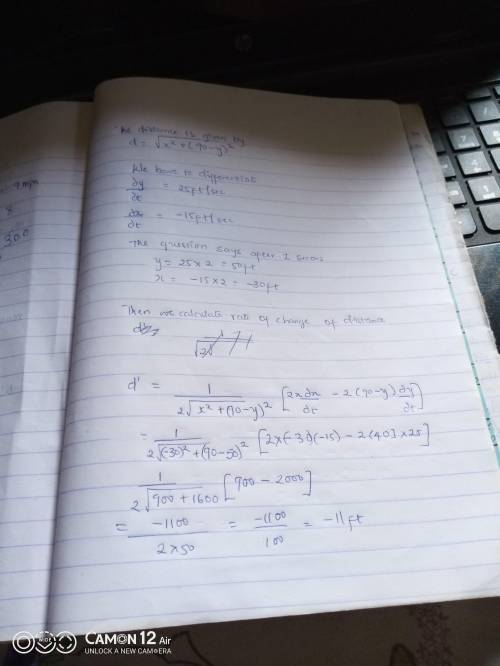 The distance is given by
d = √x² + (90-y)²
We have to differentiate
∂y/∂t = 25ft/sec
∂x/∂t = -15ft/sec
The question says after 2 secons
y = 25×2 = 50ft
x = -15×2 = -30ft
Then we calculate rate of change of distance
d' = 1/2√x²+(90-y)² [2x∂x/∂t - 2(90-y)∂y/∂t]
= 1/2√(-30)²+(90-50)² [2×(-30)(-15) - 2(40)×25]
1/2√900+1600 [900-2000]
= -1100/2×50 = -1100/100 = -11ft
8
300
CAMON 12 Air
UNLOCK A NEW CAMERA